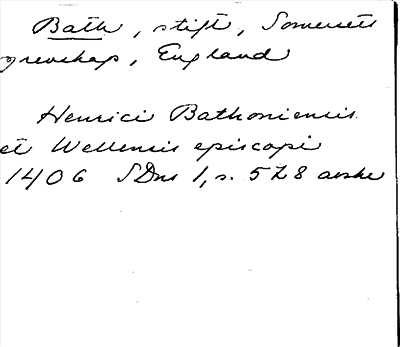 Bath, stift, Somerset
grevskap, England
Henrici Bathoniensis
et Wellensis episcopi
1406 SDns 1, s. 528 avskr